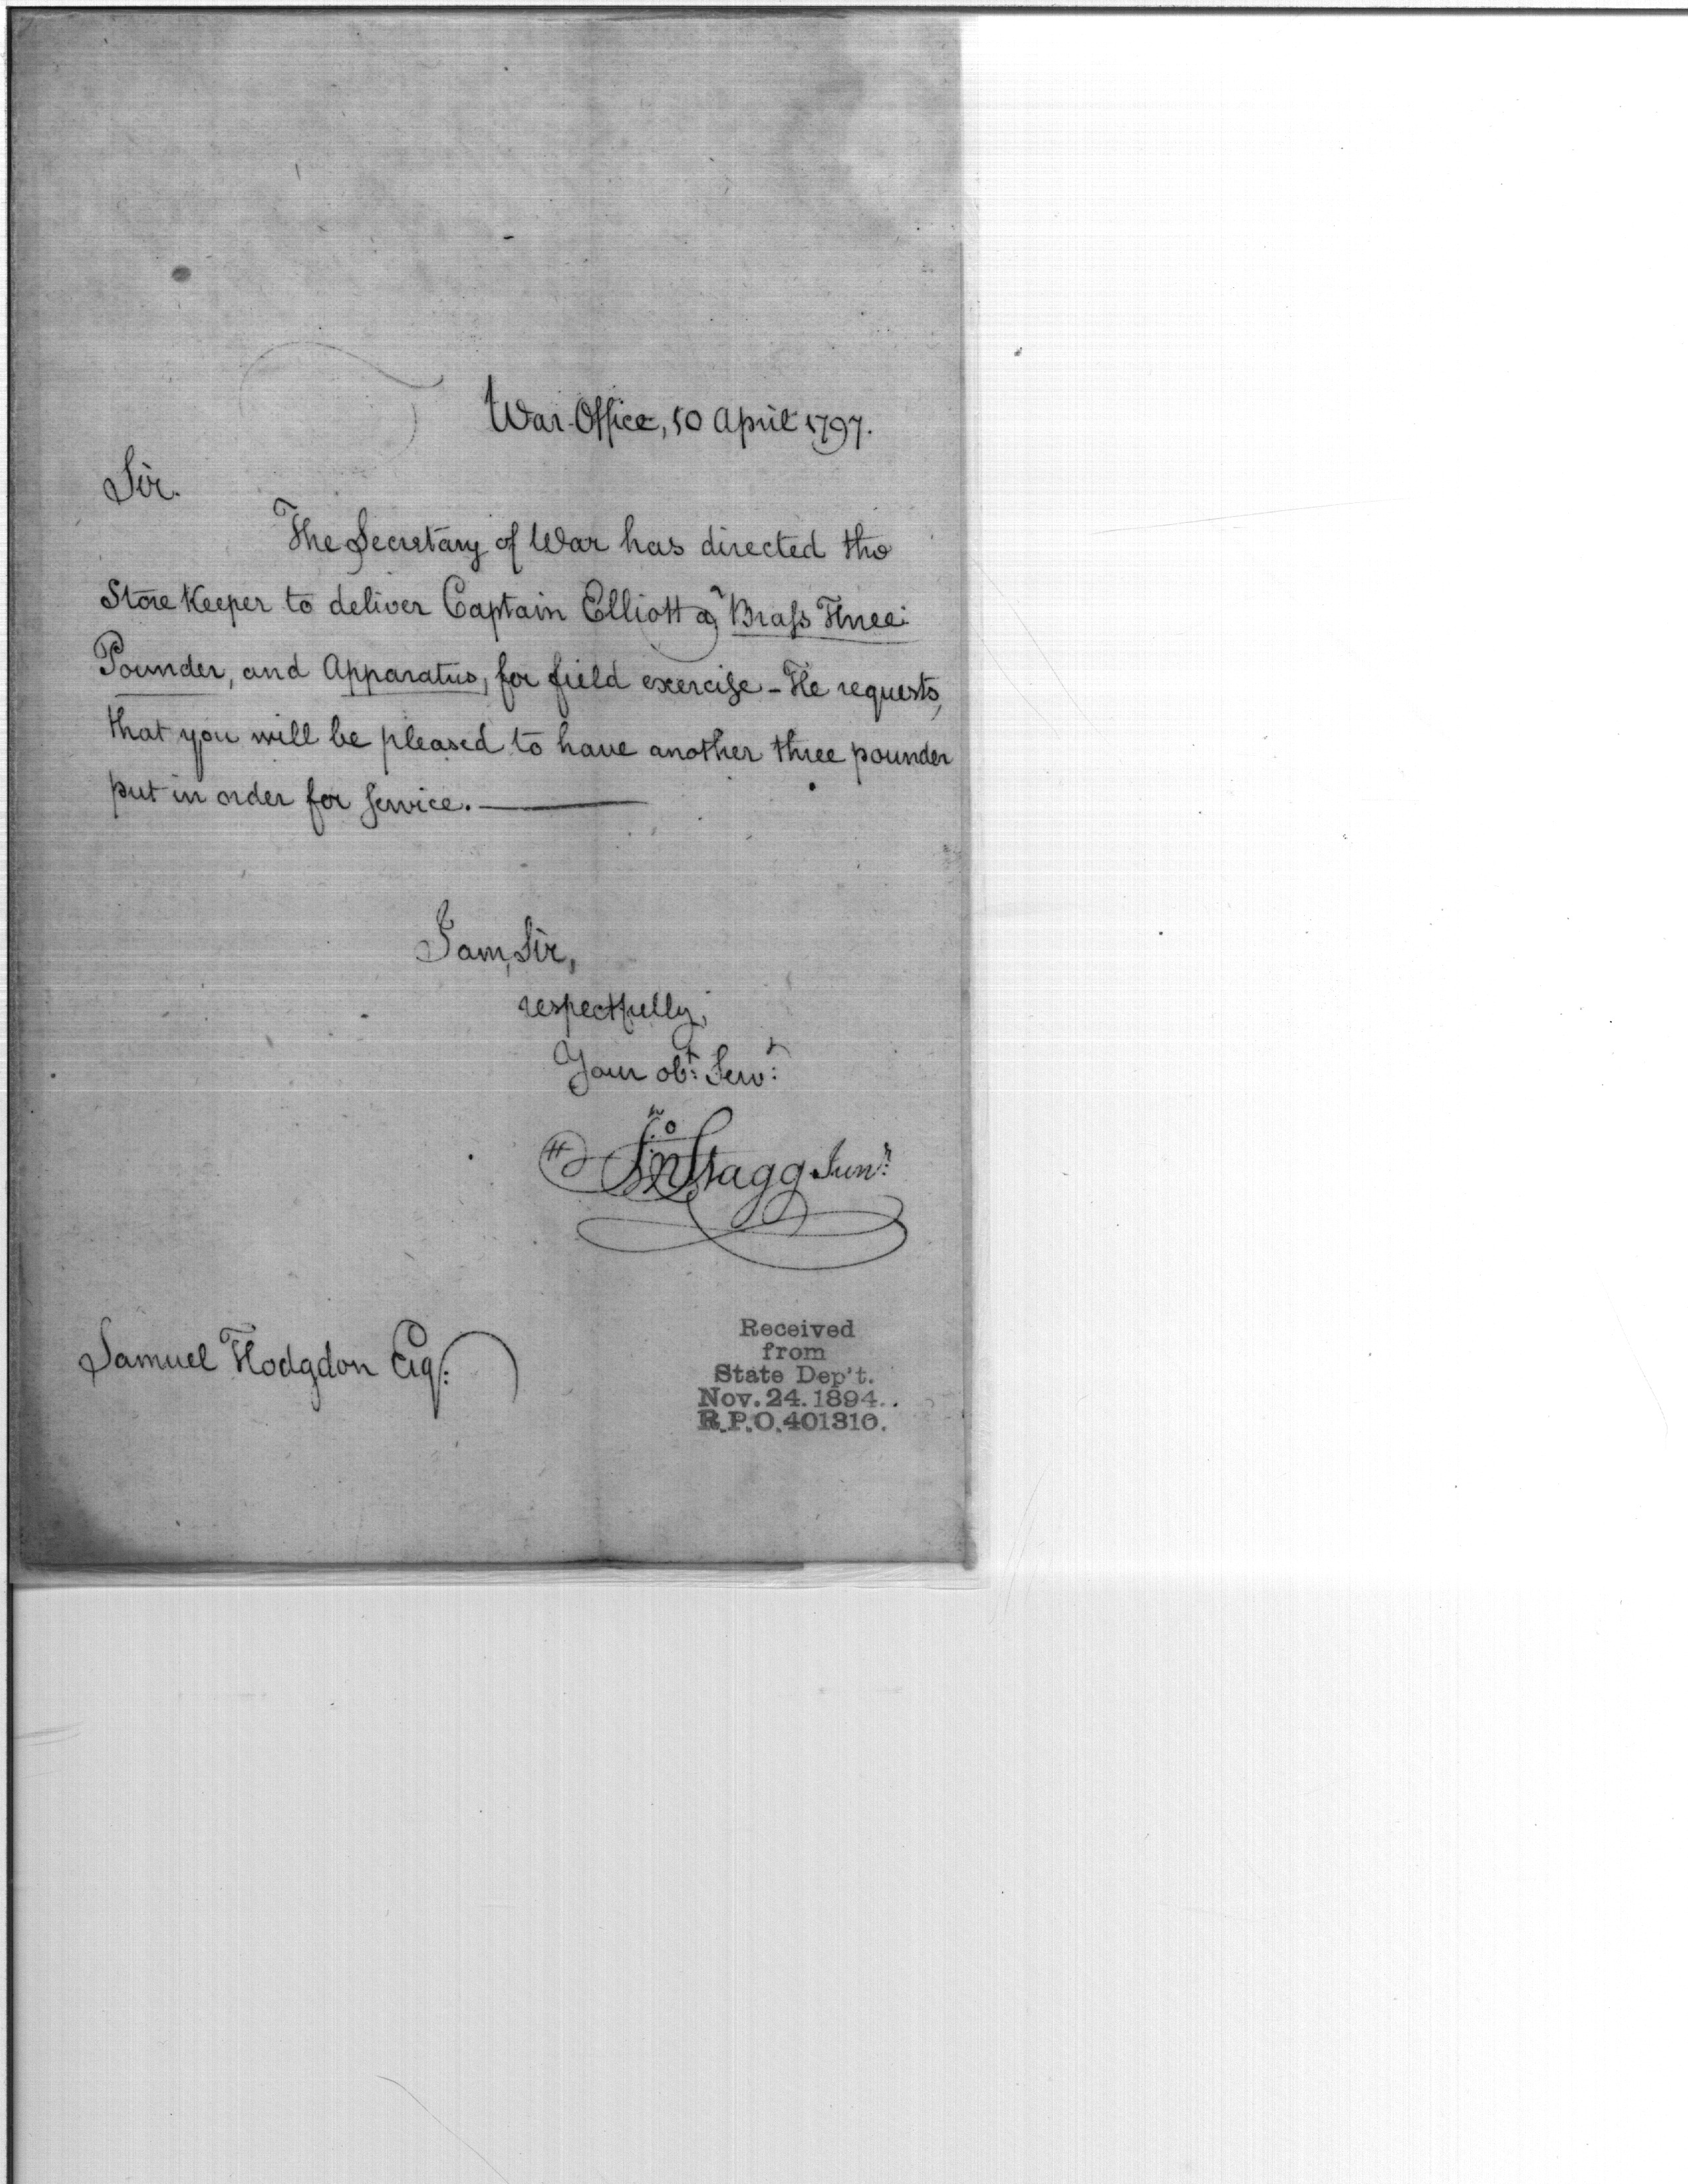 War Office, 10 April 1797.
Sir.
The Secretary of War has directed the
Store Keeper to deliver Captain Elliott a Brass Three
Pounder, and Apparatus, for field exercise - He requests,
that you will be pleased to have another three pounder
put in order for service.
I am, Sir,
respectfully,
Your obt: Servt:
Jno Stagg Junr:
Samuel Hodgdon Esq:
Received
from
State Dep't.
Nov. 24. 1894.
R.P.O. 401310.